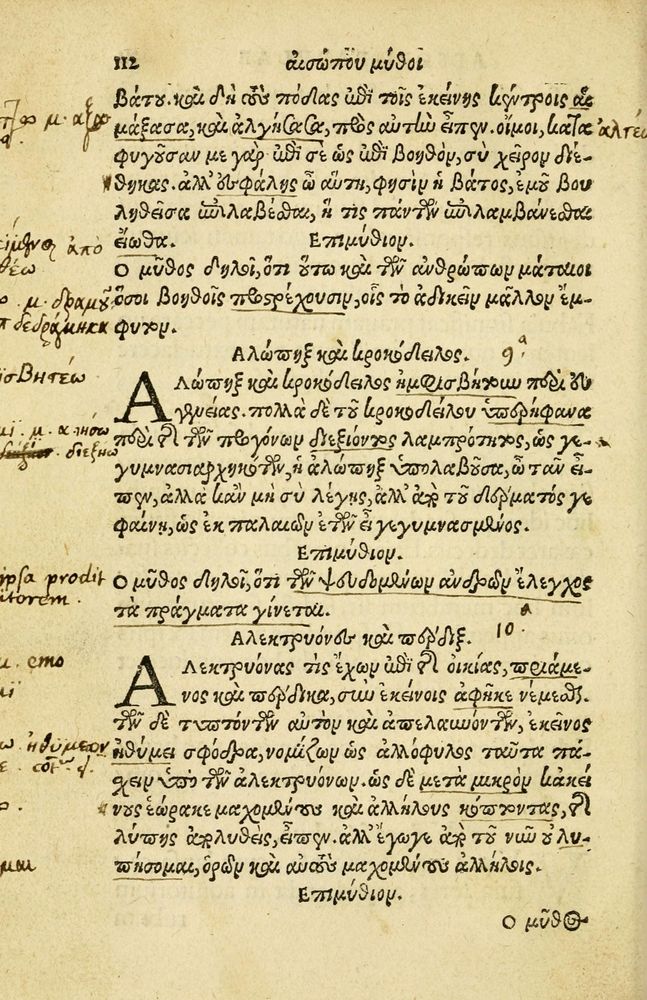 112 αισώπου μύθοι
βάτου. καὶ δὴ τοὺς πόδας ἐπὶ τοῖς ἐκείνης κέντροις αἱ-
μάξασα, καὶ ἀλγήσασα, πρὸς αὐτὴν εἶπεν. οἴμοι, κατα
φυγοῦσαν με γὰρ ἐπὶ σὲ ὡς ἐπὶ βοηθὸν, σὺ χεῖρον διέ-
θηκας. ἀλλ' ἐσφάλης ὦ αὕτη, φησὶν ἡ βάτος, ἐμοῦ βου
ληθεῖσα ἐπιλαβέσθαι, ἥ τις πάντων ἐπιλαμβάνεσθαι
εἴωθα. Επιμύθιον.
Ο μῦθος δηλοῖ, ὅτι οὕτω καὶ τῶν ἀνθρώπων μάταιοι
ὅσοι βοηθοῖς προστρέχουσιν, οἷς τὸ ἀδικεῖν μᾶλλον ἔμ-
φυτον.
Αλώπηξ καὶ κροκόδειλος. 9
Αλώπηξ καὶ κροκόδειλος ἠμφισβήτουν περὶ εὐ
γενείας. πολλὰ δὲ τοῦ κροκοδείλου ὑπερήφανα
περὶ τῆς τῶν προγόνων διεξιόντος λαμπρότητος, ὡς γε-
γυμνασιαρχηκότων, ἡ ἀλώπηξ ὑπολαβοῦσα, ὦ τᾶν εἶ-
πεν, ἀλλὰ κἂν μὴ σὺ λέγῃς, ἀλλ' ἀπὸ τοῦ δέρματός γε
φαίνῃ, ὡς ἐκ παλαιῶν ἐτῶν εἶ γεγυμνασμένος.
Επιμύθιον.
Ο μῦθος δηλοῖ, ὅτι τῶν ψευδομένων ἀνδρῶν ἔλεγχος
τὰ πράγματα γίνεται.
Αλεκτρυόνες καὶ πέρδιξ. 10
Αλεκτρυόνας τὶς ἔχων ἐπὶ τῆς οἰκίας, πριάμε-
νος καὶ πέρδικα, σὺν ἐκείνοις ἀφῆκε νέμεσθαι.
τῶν δὲ τυπτόντων αὐτὸν καὶ ἀπελαυνόντων, ἐκεῖνος
ἠθύμει σφόδρα, νομίζων ὡς ἀλλόφυλος ταῦτα πά-
σχειν ὑπὸ τῶν ἀλεκτρυόνων. ὡς δὲ μετὰ μικρὸν κἀκεί
νους ἑώρακε μαχομένους καὶ ἀλλήλους κόπτοντας, τῆς
λύπης ἀπολυθεὶς, εἶπεν. ἀλλ' ἔγωγε ἀπὸ τοῦ νῦν οὐ λυ-
πήσομαι, ὁρῶν καὶ αὐτοὺς μαχομένους ἀλλήλοις.
Επιμύθιον.
Ο μῦθος
ἀπὸ
θέω
μ. δραμοῦ
δεδράμηκα
ισβητέω
διεξήω
ipsa prodit
emo